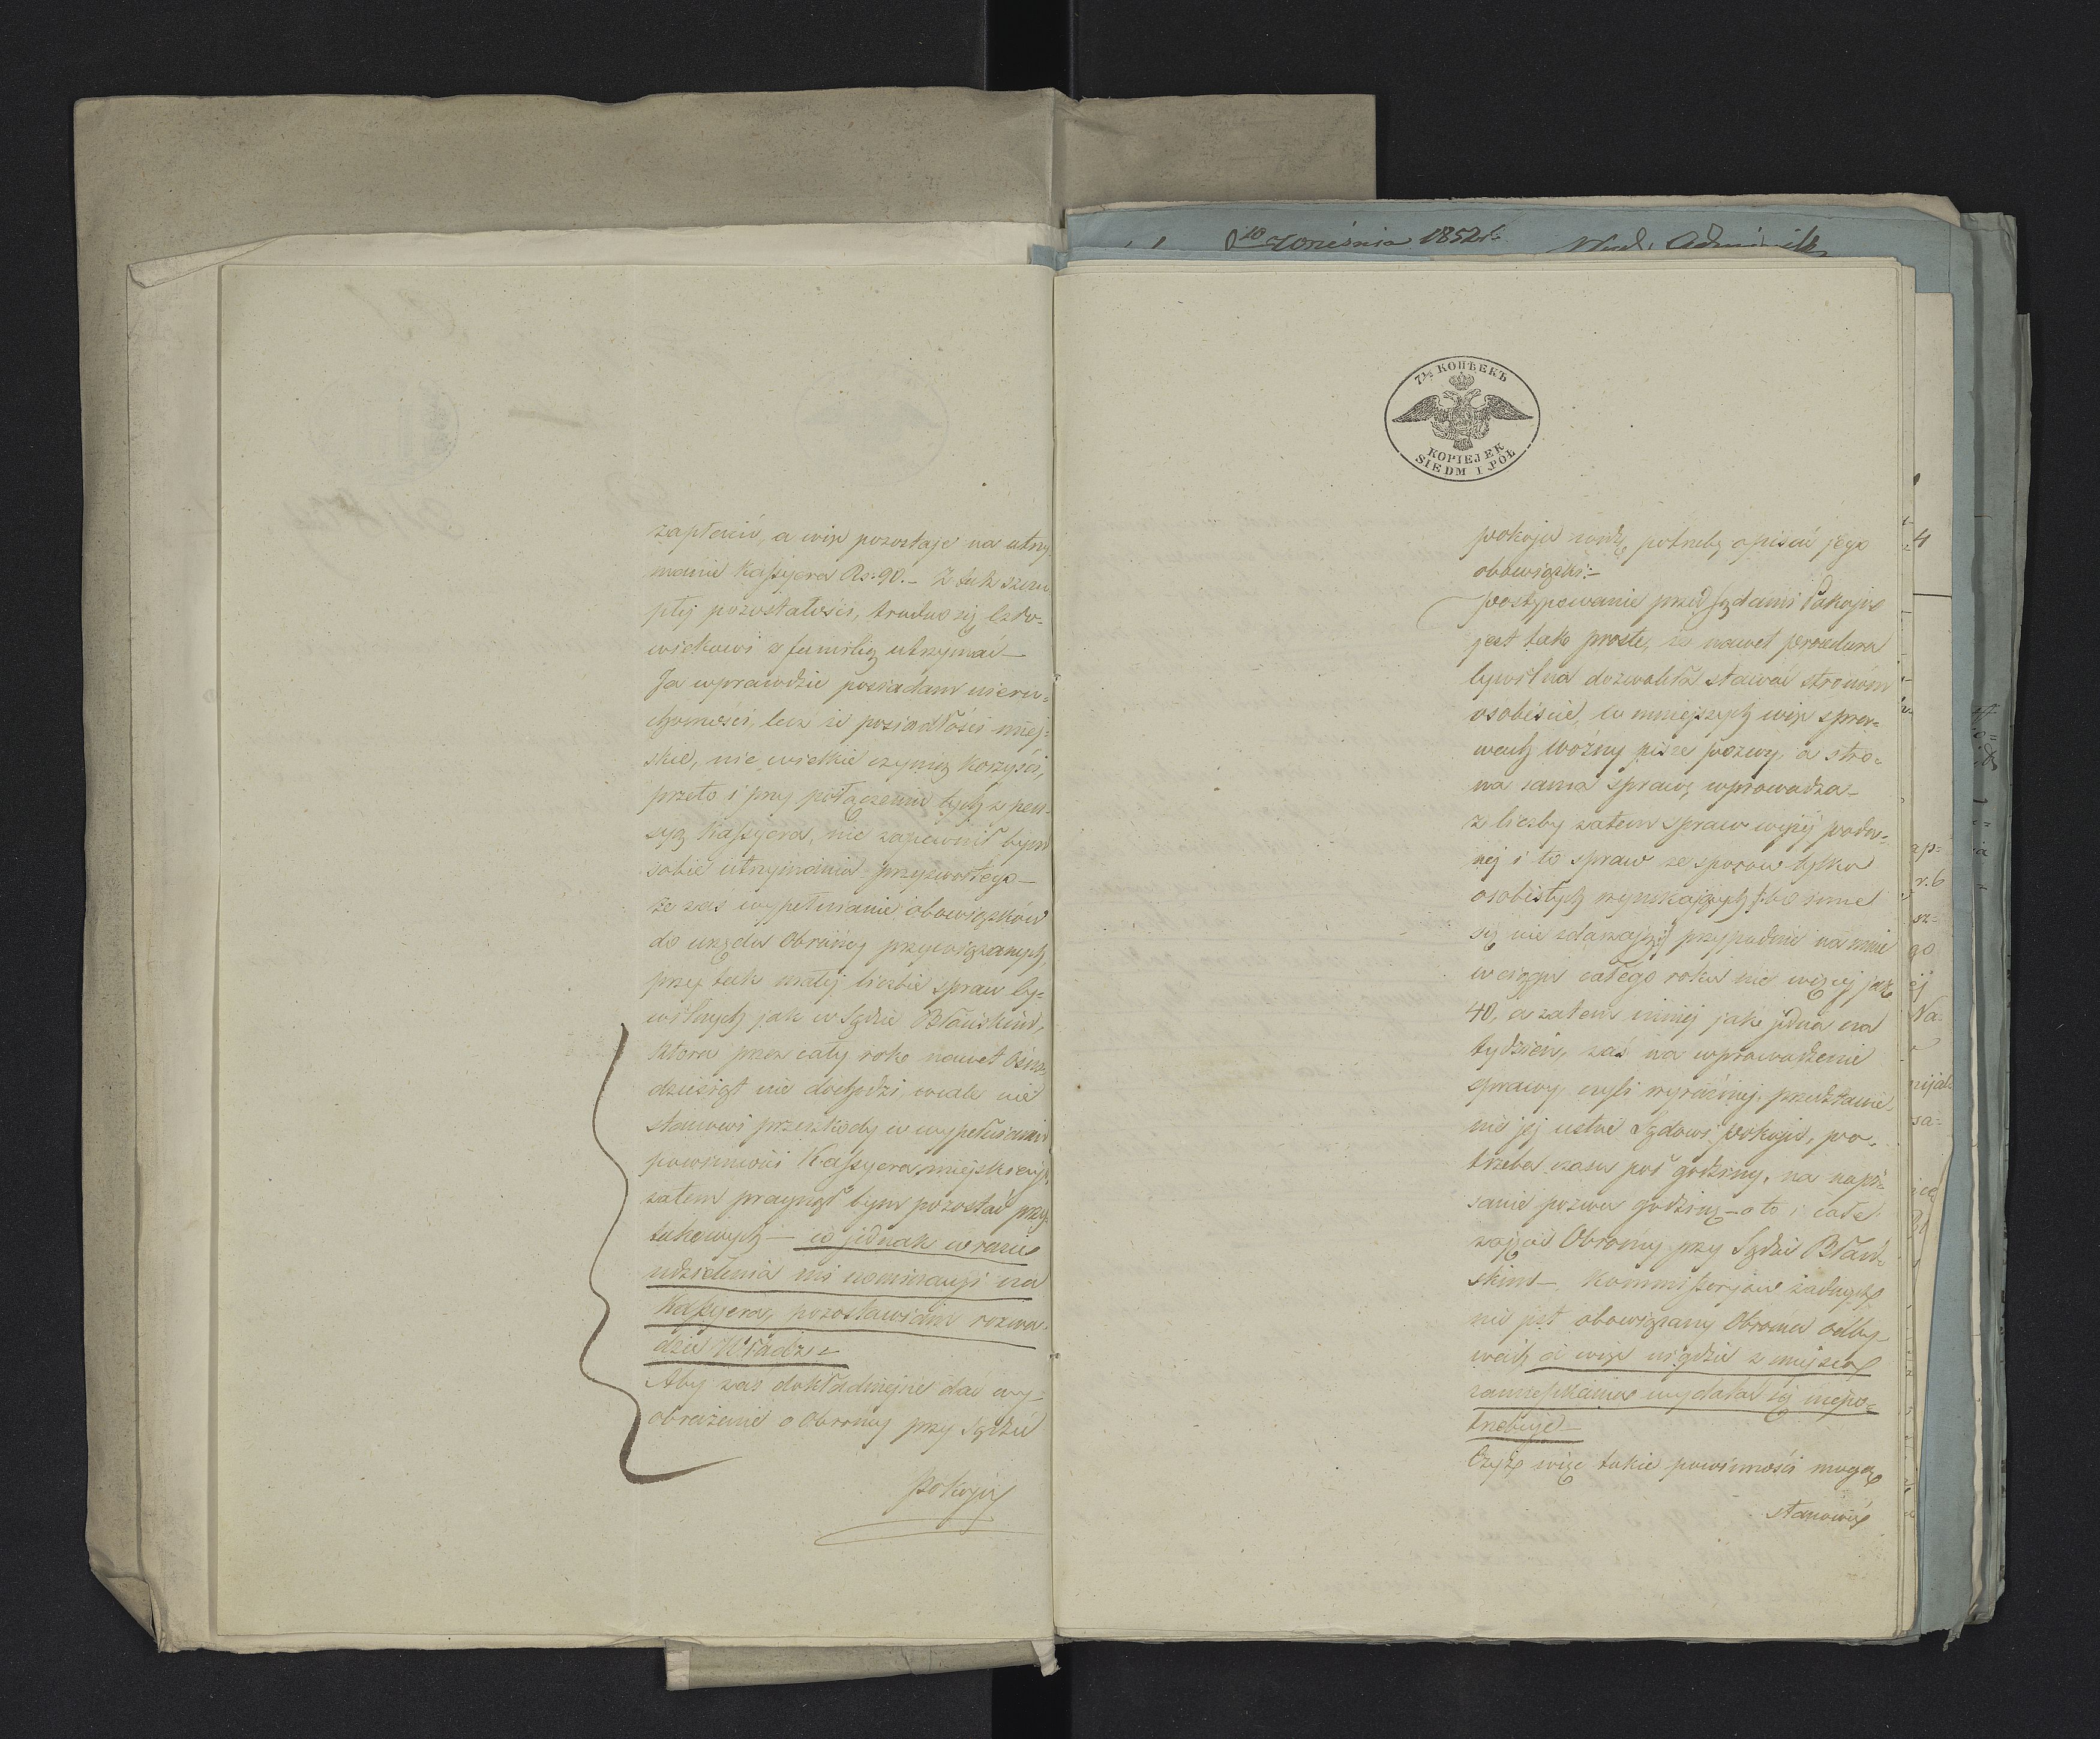 zapłacić, a więc pozostaje na utrzy
manie Kassyera Rs: 90.– Z tak szczu
płej pozostałości, trudno się Czło=
wiekowi z familią utrzymać –
Ja wprawdzie posiadam nieru=
chomości, lecz że posiadłości miej=
skie, nie wielkie czynią korzyści,
przeto i przy połączeniu tych z pen=
syą Kassyera, nie zapewnił bym
sobie utrzymania przyzwoitego –
że zaś wypełnianie obowiązków
do urzędu Obrońcy przywiązanych,
przy tak małej liczbie spraw Cy=
wilnych jak w Sądzie Błońskim,
która przez cały rok nawet Ośm=
dziesiąt nie dochodzi, wcale nie
stanowi przeszkody w wypełnianiu
powinności Kassyera miejskiego,
zatem pragnął bym pozostać przy
takowych – co jednak w razie
udzielenia mi nominacyi na
Kassyera, pozostawiam rozwa=
dze Władz –
Aby zaś dokładniejsze dać wy=
obrażenie o Obrońcy przy Sądzie
Pokoju
10 Września 1852 r.
7½ КОПѢЕКЪ
KOPIEJEK
SIEDM I PÓŁ
pokoju widzę potrzebę opisać jego
obowiązki:–
Postępowanie przed Sądami Pokoju
jest tak proste, że nawet procedura
Cywilna dozwoliła stawać stronom
osobiście, w mniejszych więc spra=
wach Woźny pisze pozwy, a stro=
na sama sprawę wprowadza –
z liczby zatem spraw wyżej poda=
nej i to spraw ze sporów tylko
osobistych wynikających /: bo inne
się nie zdarzają :/ przypadnie na mnie
w ciągu całego roku nie więcej jak
40, a zatem mniej jak jedna na
tydzień, zaś na wprowadzenie
sprawy, czyli wyraźniej przedstawie=
nie jej ustne Sądowi pokoju, po=
trzeba czasu pół godziny, na napi=
sanie pozwu godzinę – oto i całe
zajęcie Obrońcy przy Sądzie Błoń=
skim –, Kommissorjów żadnych
nie jest obowiązany Obrońca odby=
wać, a więc nigdzie z miejsca
zamieszkania wydalać się niepo=
trzebuje –
Czyż więc takie powinności mogą
stanowić